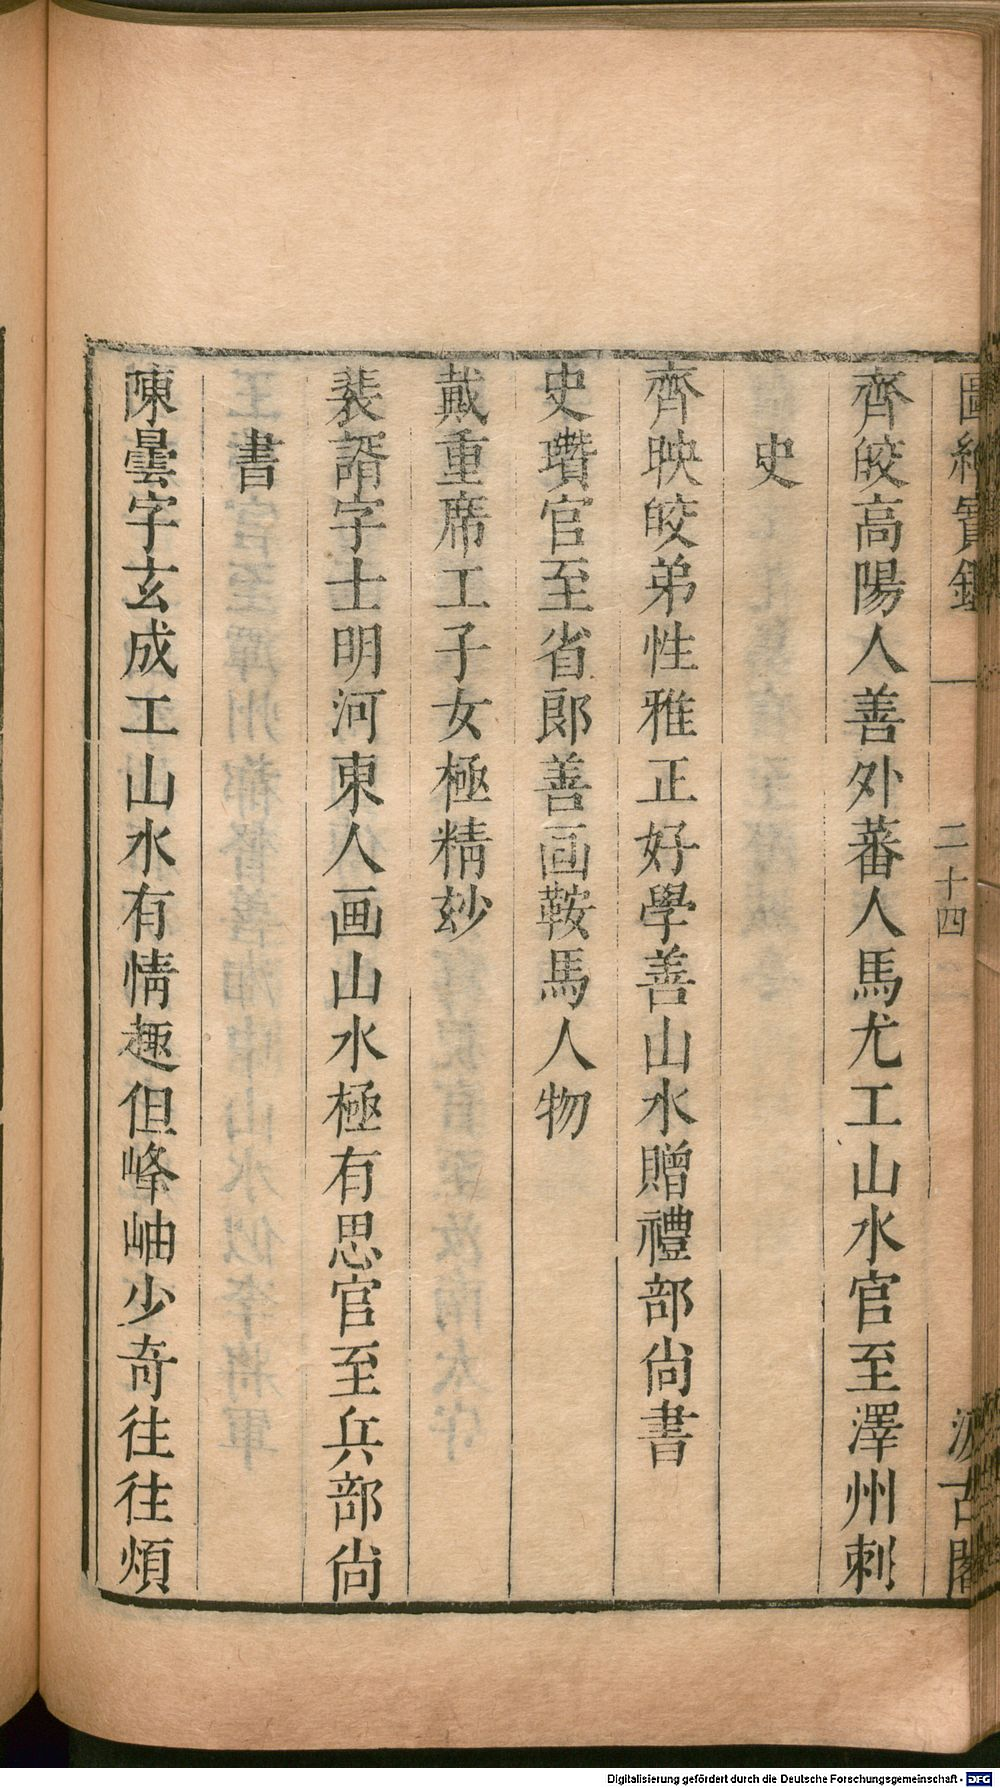 圖繪寶鑑
二十四
汲古閣
齊皎高陽人善外蕃人馬尤工山水官至澤州刺
史
齊映皎弟性雅正好學善山水贈禮部尚書
史瓚官至省郎善画鞍馬人物
戴重席工子女極精玅
裴諝字士明河東人画山水極有思官至兵部尚
書
陳曇字玄成工山水有情趣但峰岫少奇往往煩
Digitalisierung gefördert durch die Deutsche Forschungsgemeinschaft - DFG